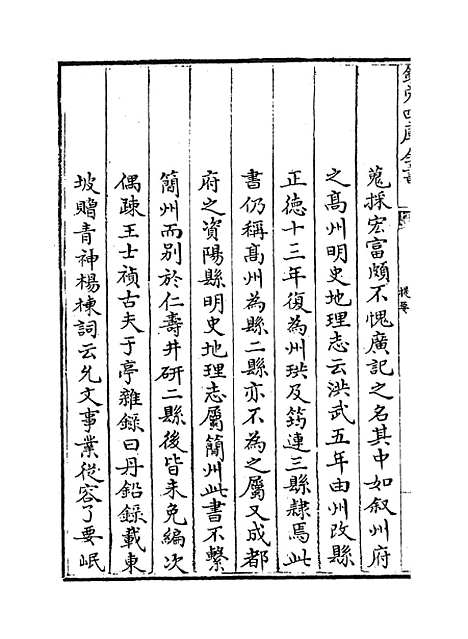 欽定四庫全書
提要
蒐採宏富頗不愧廣記之名其中如叙州府
之髙州明史地理志云洪武五年由州改縣
正徳十三年復為州珙及筠連三縣隷焉此
書仍稱髙州為縣二縣亦不為之屬又成都
府之資陽縣明史地理志屬簡州此書不繫
簡州而别於仁壽井研二縣後皆未免編次
偶疎王士禎古夫于亭雜録曰丹鉛録載東
坡贈青神楊棟詞云允文事業從容了要岷